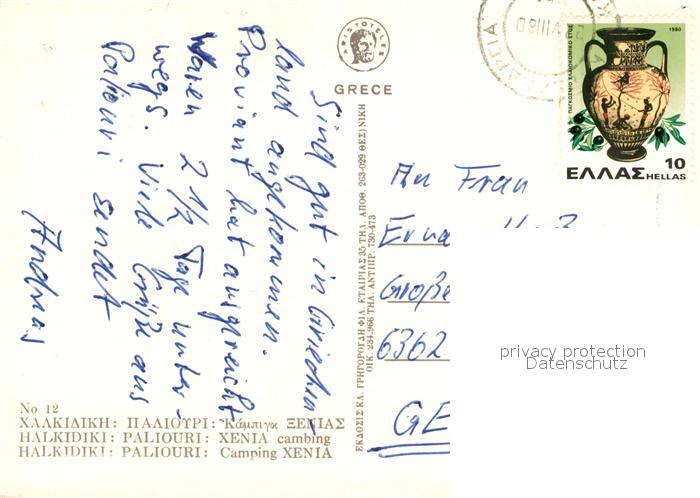 ARISTOTELES
GRECE
ΠΑΓΚΟΣΜΙΟ ΕΛΑΙΟΚΟΜΙΚΟ ΕΤΟΣ
1980
10
ΕΛΛΑΣ HELLAS
Sind gut in Griechen-
land angekommen.
Proviant hat ausgereicht
Waren 2 1/2 Tage unter-
wegs. Viele Grüße aus
Paliouri sendet
Andreas
ΕΚΔΟΣΙΣ ΚΛ. ΓΡΗΓΟΡΟΙΔΗ ΦΙΛ. ΕΤΑΙΡΙΑΣ 35 ΤΗΛ. ΑΠΟΘ. 263-029 ΘΕΣ)ΝΙΚΗ
ΟΙΚ. 234-966 ΤΗΛ. ΑΝΤΙΠΡ. 730-473
An Frau
Erna
Große
6362
GE
privacy protection
Datenschutz
No 12
ΧΑΛΚΙΔΙΚΗ: ΠΑΛΙΟΥΡΙ: Κάμπιγκ ΞΕΝΙΑΣ
HALKIDIKI: PALIOURI: XENIA cambing
HALKIDIKI: PALIOURI: Camping XENIA